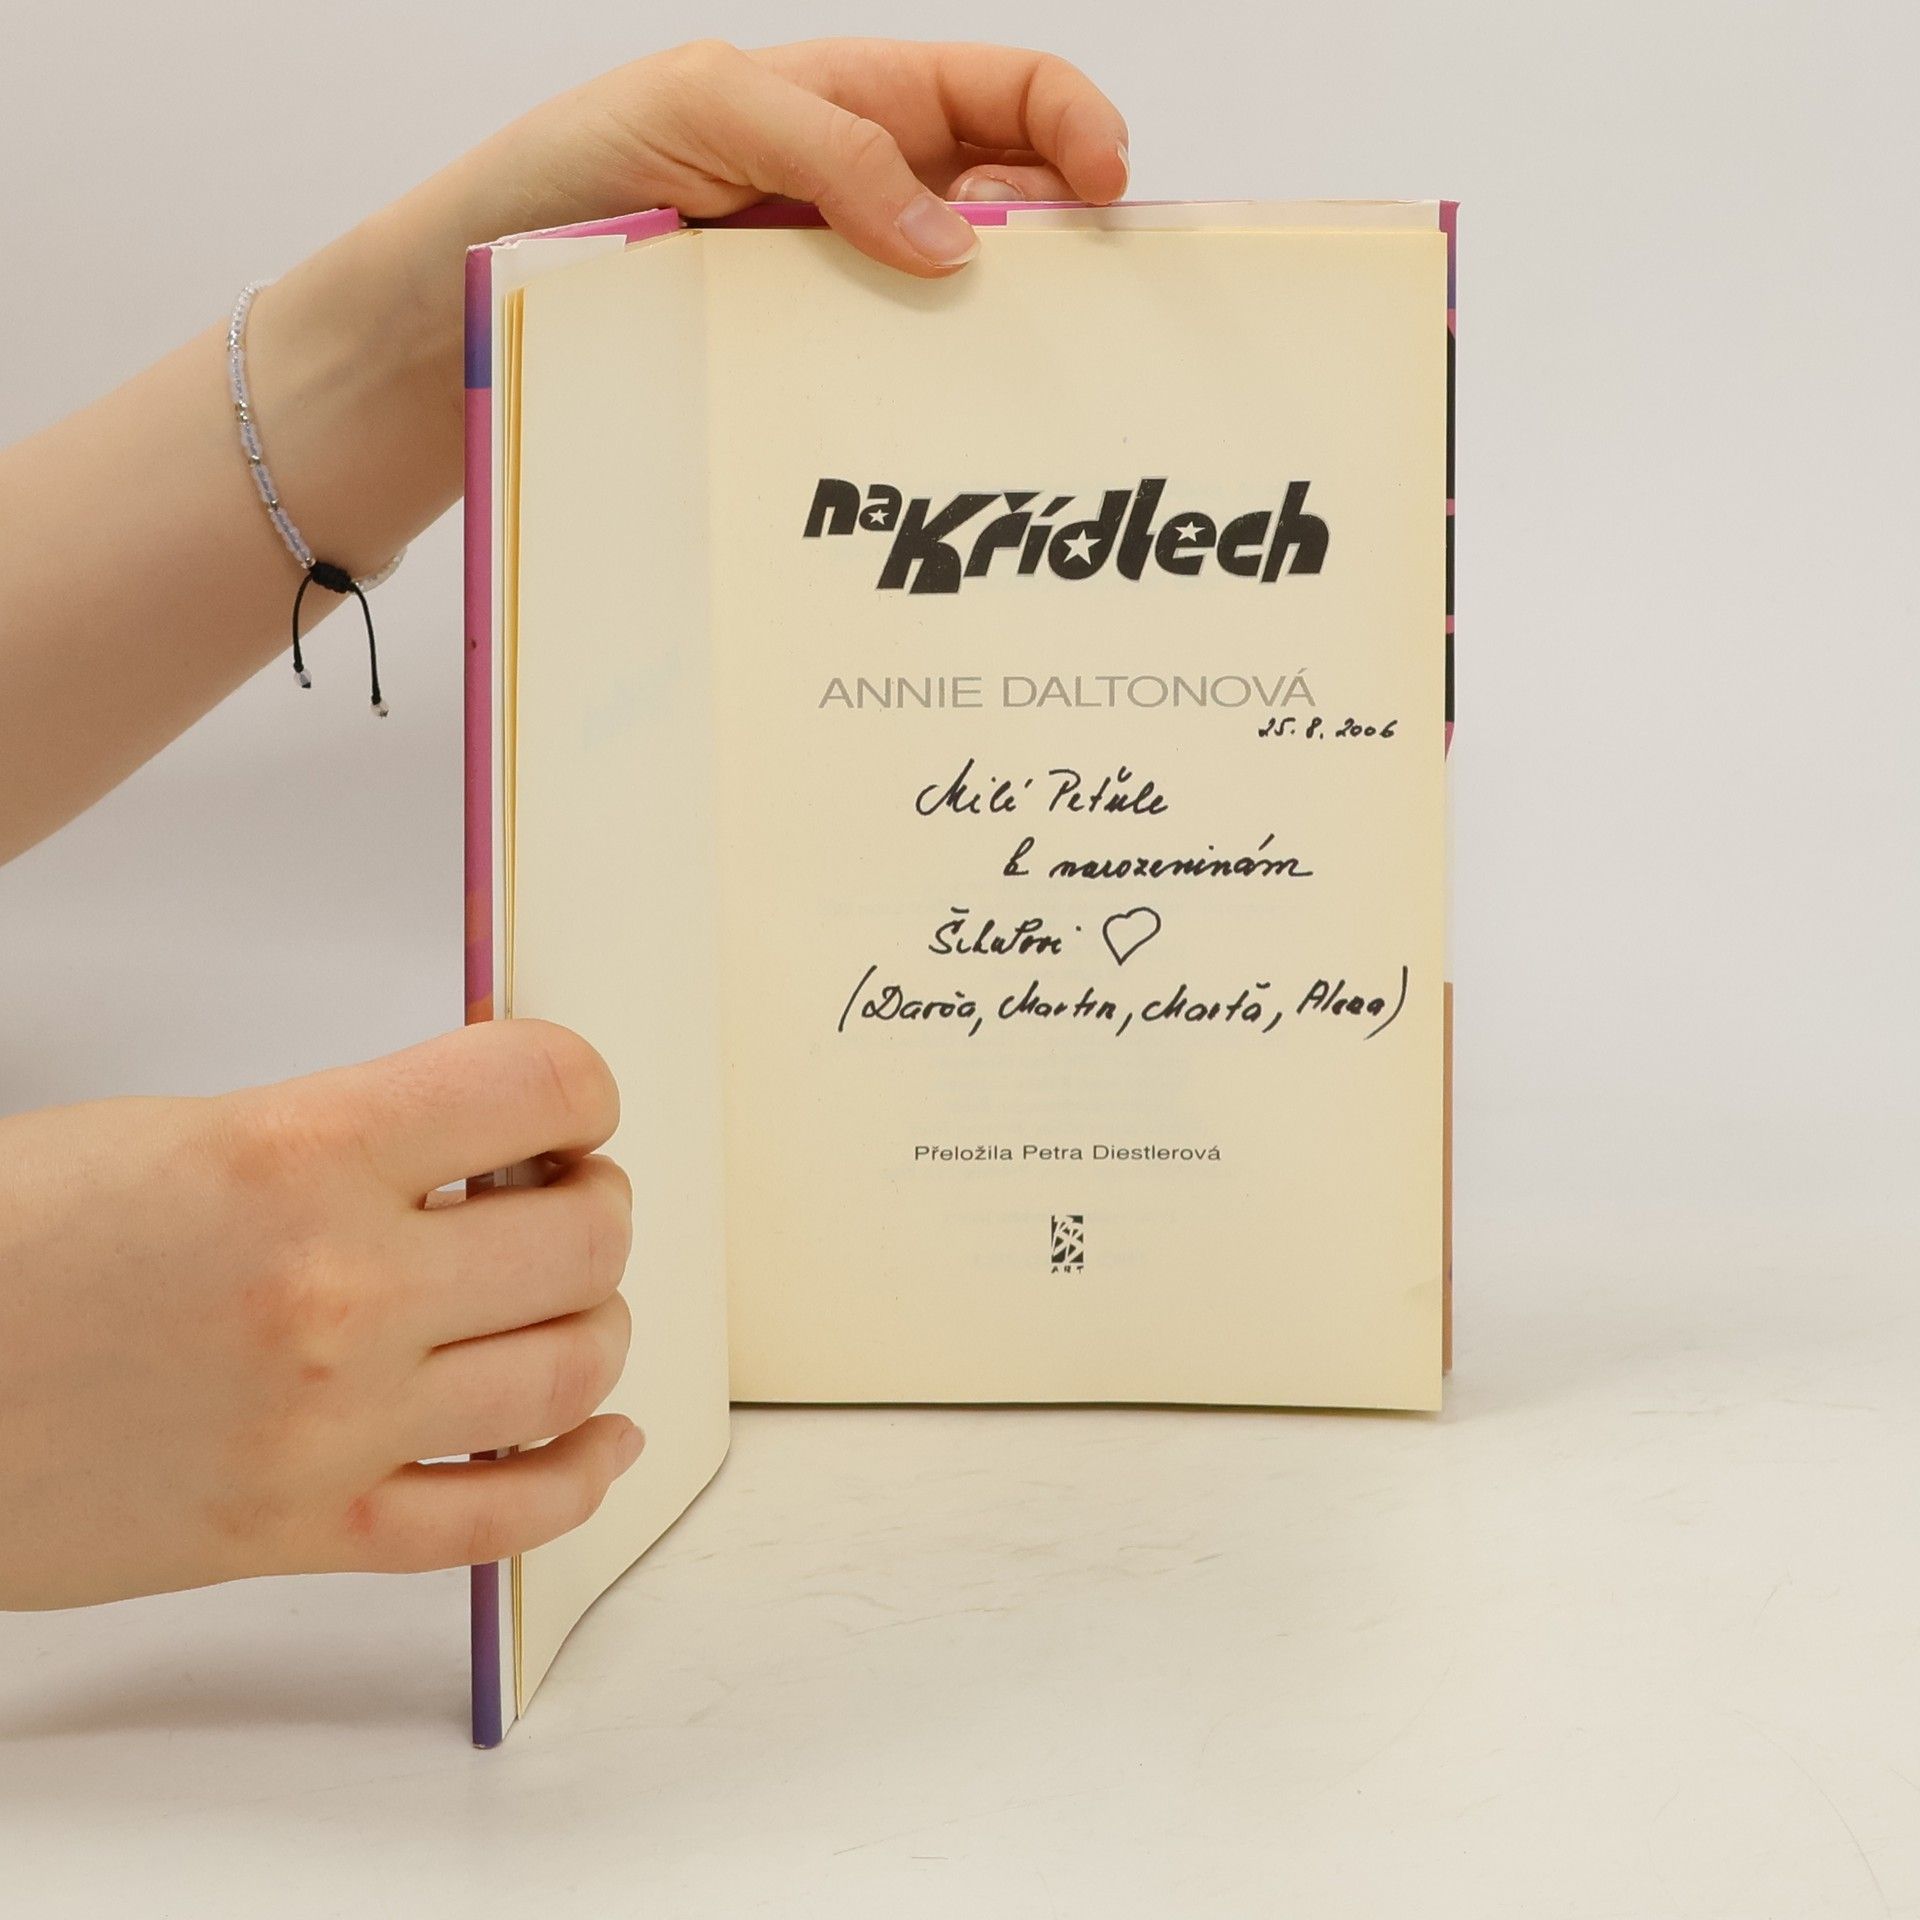 na Křídlech
ANNIE DALTONOVÁ
25. 8. 2006
Milé Peťule
k narozeninám
(Darča, Martin, Marťa, Alena)
Přeložila Petra Diestlerová
BB
ART